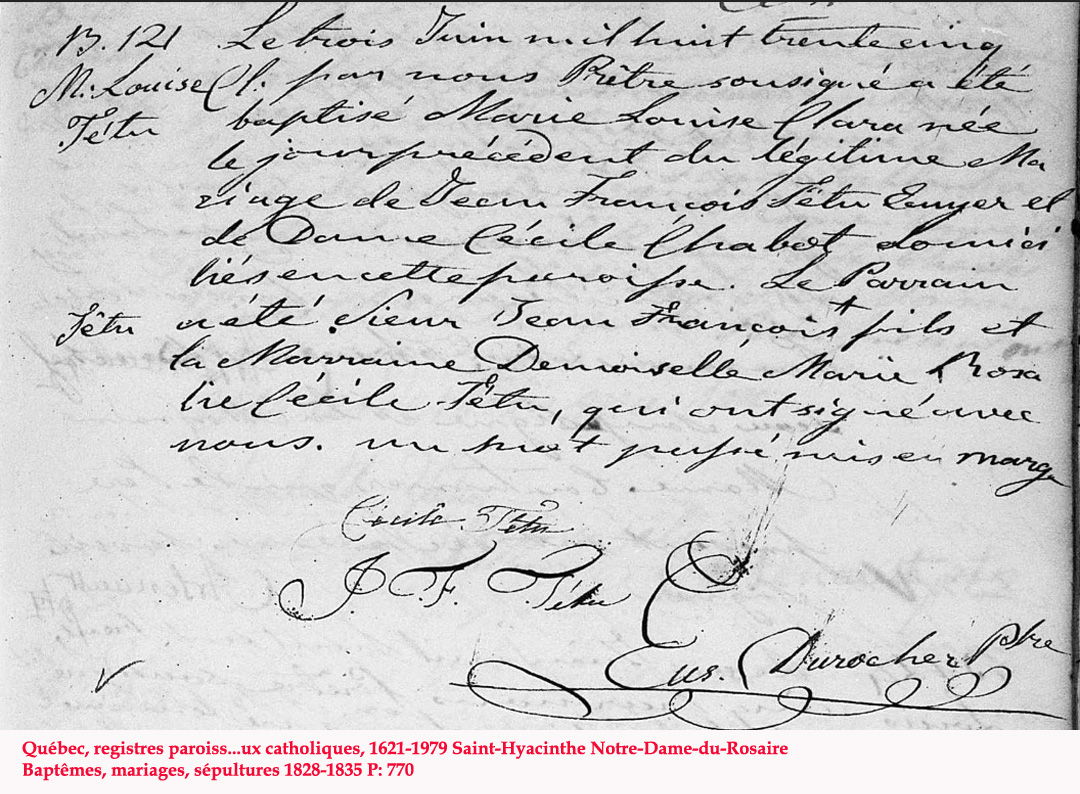 B. 121
M. Louise Cl.
Têtu
Le trois Juin mil huit trente cinq
par nous Prêtre sousigné a été
baptisé Marie Louise Clara née
le jour précédent du légitime Ma
riage de Jean François Têtu Ecuyer et
de Dame Cécile Chabot domici
liés en cette paroisse. Le Parrain
Têtu
a été Sieur Jean François + fils et
la Marraine Demoiselle Marie Rosa
lie Cécile Têtu, qui ont signé avec
nous. un mot passé mis en marge
Cécile Têtu
J. F. Têtu
Eus. Durocher Ptre
Québec, registres paroiss...ux catholiques, 1621-1979 Saint-Hyacinthe Notre-Dame-du-Rosaire
Baptêmes, mariages, sépultures 1828-1835 P: 770